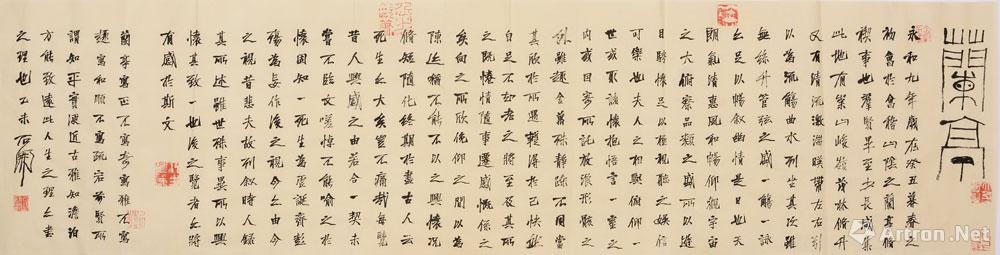 蘭亭
永和九年歲在癸丑暮春之
初會於會稽山陰之蘭亭脩
禊事也群賢畢至少長咸集
此地有崇山峻嶺茂林脩竹
又有清流激湍暎帶左右引
以為流觴曲水列坐其次雖
無絲竹管弦之盛一觴一詠
亦足以暢敘幽情是日也天
朗氣清惠風和暢仰觀宇宙
之大俯察品類之盛所以遊
目騁懷足以極視聽之娛信
可樂也夫人之相與俯仰一
世或取諸懷抱悟言一室之
內或因寄所託放浪形骸之
外雖趣舍萬殊靜躁不同當
其欣於所遇暫得於己快然
自足不知老之將至及其所
之既惓情隨事遷感慨係之
矣向之所欣俛仰之間以為
陳迹猶不能不以之興懷況
脩短隨化終期於盡古人云
死生亦大矣豈不痛哉每覽
昔人興感之由若合一契未
嘗不臨文嗟悼不能喻之於
懷固知一死生為虛誕齊彭
殤為妄作後之視今亦由今
之視昔悲夫故列敘時人錄
其所述雖世殊事異所以興
懷其致一也後之覽者亦將
有感於斯文
蘭亭寫正不寫奇寫雅不寫
趣寫和順不寫疏宕賢所
謂知平實便近古雅知澹泊
方能致遠此人生之理亦書
之理也乙未石開
Artron.Net